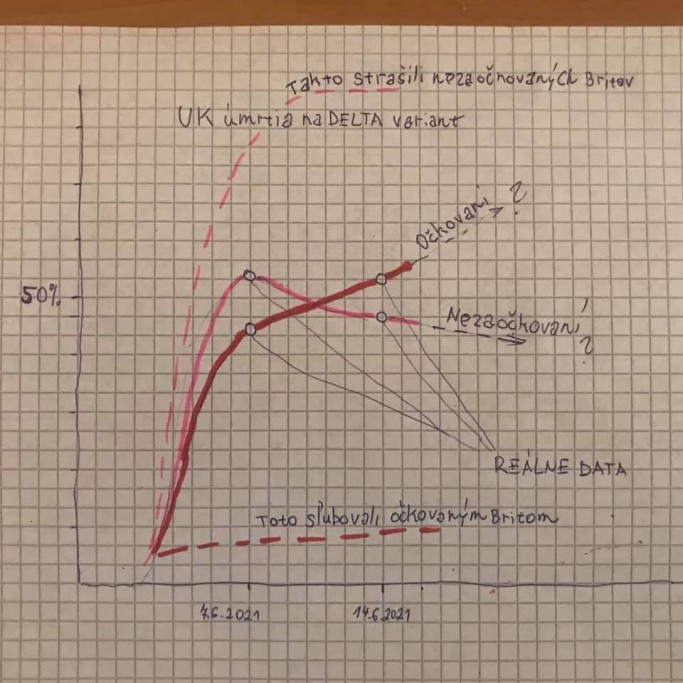 Takto strašili nezaočkovaných Britov
UK úmrtia na DELTA variant
Očkovaní ?
50%
Nezaočkovaní
?
REÁLNE DATA
Toto sľubovali očkovaným Britom
7.6.2021
14.6.2021